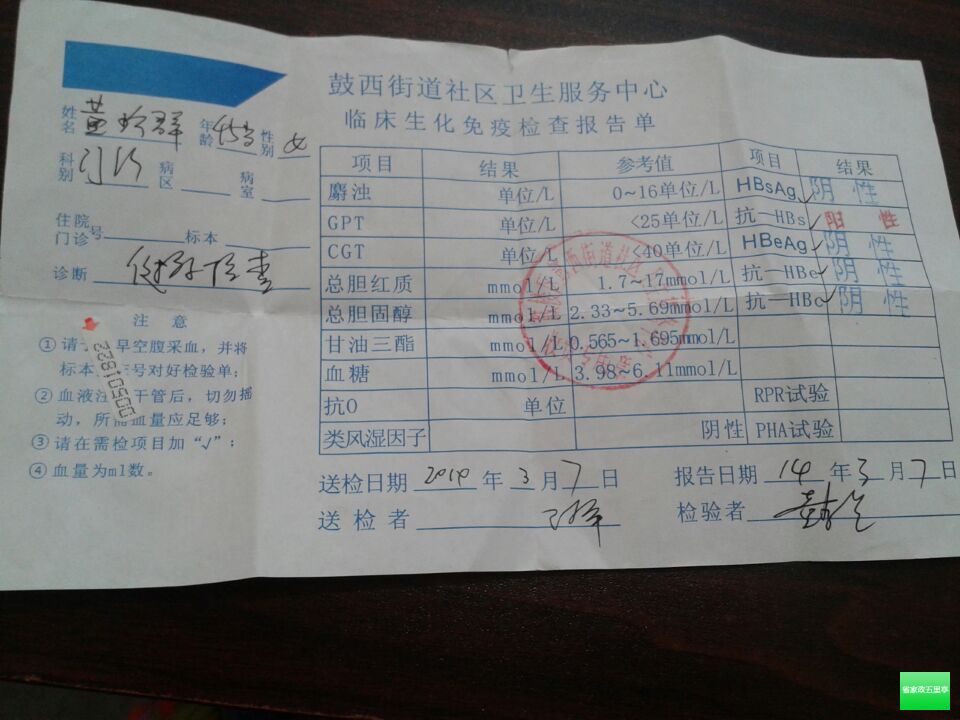 鼓西街道社区卫生服务中心
临床生化免疫检查报告单
姓名 黄珍群 年龄 45岁 性别 女
科别 门诊 病区 病室
住院门诊号 标本
诊断
注 意
早空腹采血，并将
标本 号对好检验单；
② 血液注 干管后，切勿摇
动，所 血量应足够；
③ 请在需检项目加“√”；
④ 血量为ml数。
00501822
项目 结果 参考值 项目 结果
麝浊 单位/L 0~16单位/L HBsAg 阴 性
GPT 单位/L <25单位/L 抗—HBs 阳 性
CGT 单位/L <40单位/L HBeAg 阴 性
总胆红质 mmol/L 1.7~17mmol/L 抗—HBe 阴 性
总胆固醇 mmol/L 2.33~5.69mmol/L 抗—HBc 阴 性
甘油三酯 mmol/L 0.565~1.695mmol/L
血糖 mmol/L 3.98~6.11mmol/L
抗O 单位 RPR试验
类风湿因子 阴性 PHA试验
送检日期 2014 年 3 月 7 日 报告日期 14 年 3 月 7 日
送检者 检验者
省家政五里亭